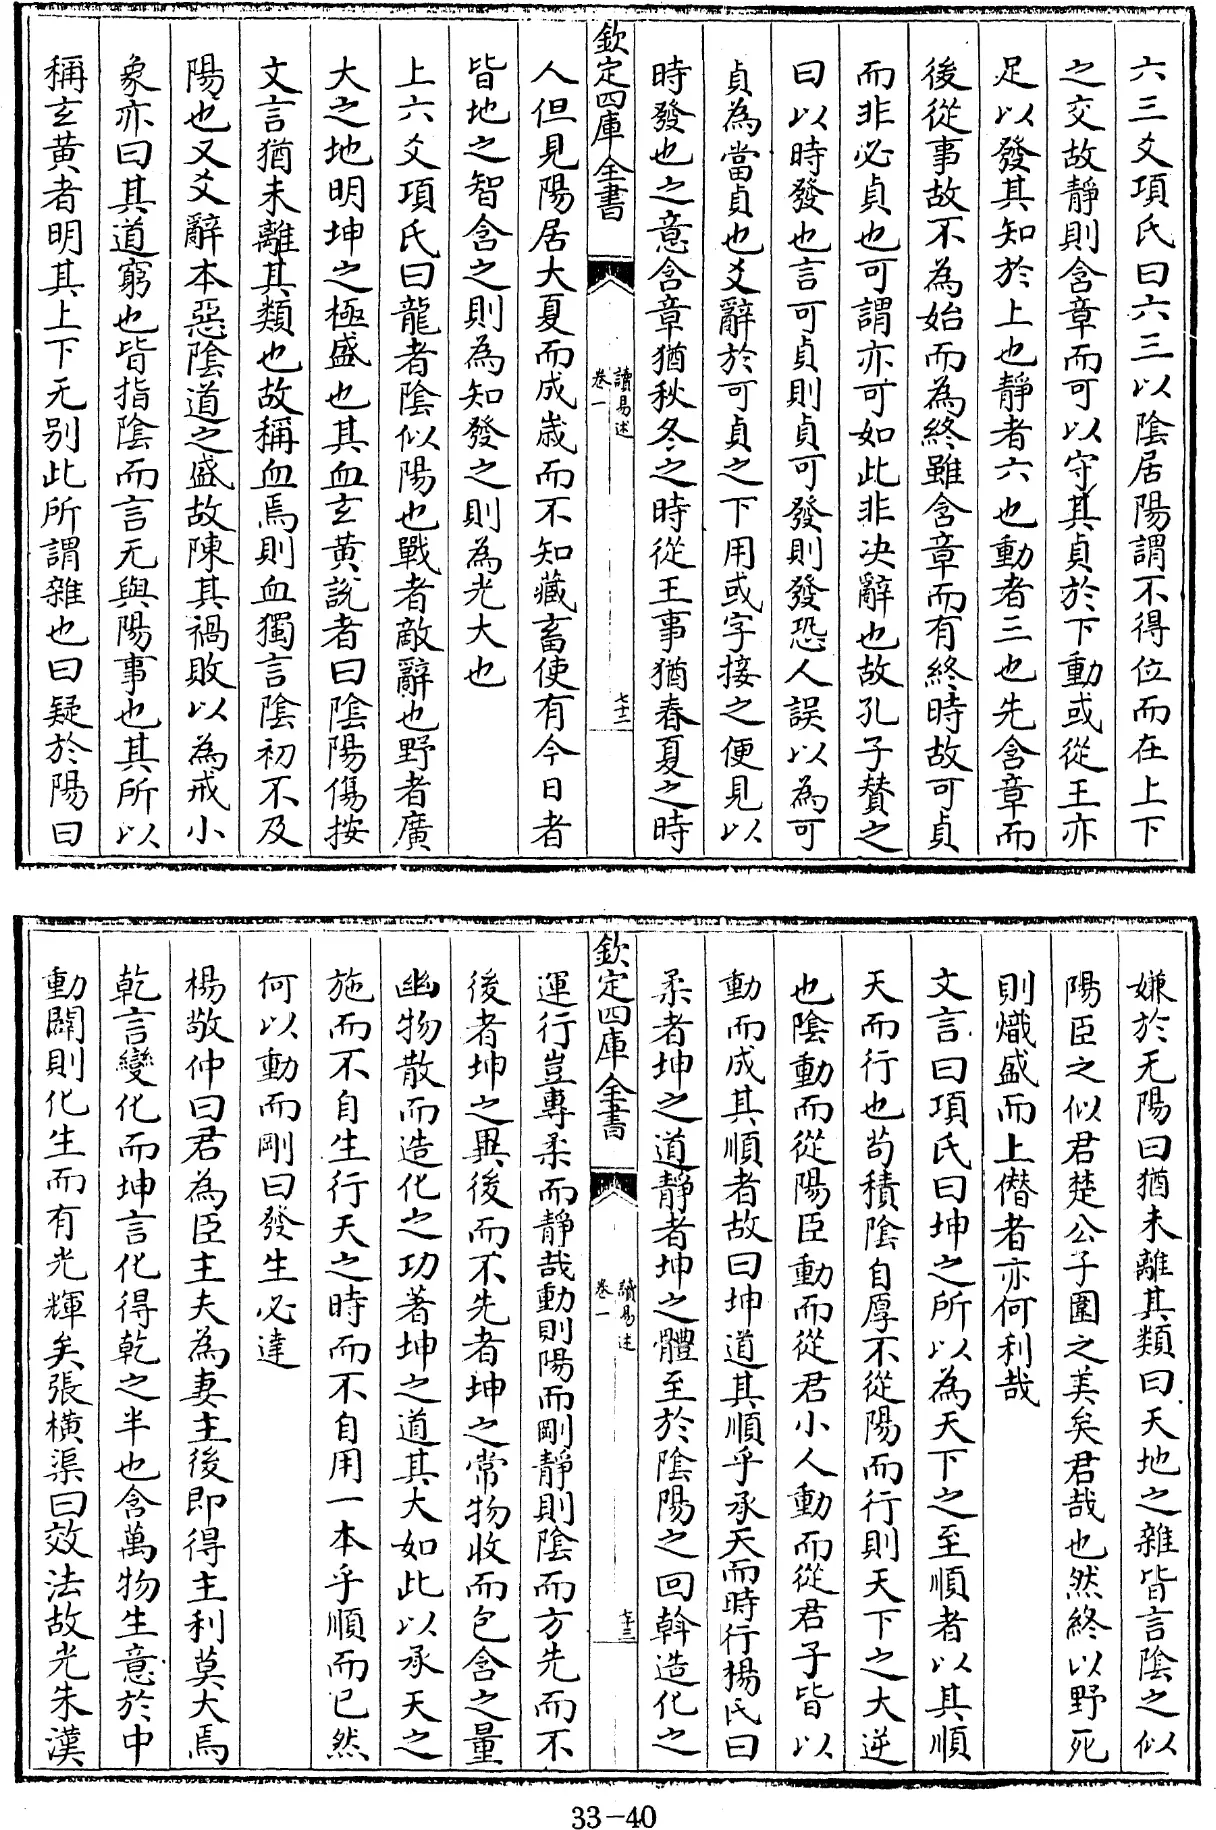 六三爻項氏曰六三以陰居陽謂不得位而在上下
之交故靜則含章而可以守其貞於下動或從王亦
足以發其知於上也靜者六也動者三也先含章而
後從事故不為始而為終雖含章而有終時故可貞
而非必貞也可謂亦可如此非决辭也故孔子賛之
曰以時發也言可貞則貞可發則發恐人誤以為可
貞為當貞也爻辭於可貞之下用或字接之便見以
時發也之意含章猶秋冬之時從王事猶春夏之時
欽定四庫全書
讀易述
卷一
七十二
人但見陽居大夏而成歳而不知藏畜使有今日者
皆地之智含之則為知發之則為光大也
上六爻項氏曰龍者陰似陽也戰者敵辭也野者廣
大之地明坤之極盛也其血玄黄說者曰陰陽傷按
文言猶未離其類也故稱血焉則血獨言陰初不及
陽也又爻辭本惡陰道之盛故陳其禍敗以為戒小
象亦曰其道窮也皆指陰而言无與陽事也其所以
稱玄黄者明其上下无别此所謂雜也曰疑於陽曰
嫌於无陽曰猶未離其類曰天地之雜皆言陰之似
陽臣之似君楚公子圍之美矣君哉也然終以野死
則熾盛而上僭者亦何利哉
文言曰項氏曰坤之所以為天下之至順者以其順
天而行也茍積陰自厚不從陽而行則天下之大逆
也陰動而從陽臣動而從君小人動而從君子皆以
動而成其順者故曰坤道其順乎承天而時行楊氏曰
柔者坤之道靜者坤之體至於陰陽之回斡造化之
欽定四庫全書
讀易述
卷一
七十三
運行豈專柔而靜哉動則陽而剛靜則陰而方先而不
後者坤之異後而不先者坤之常物收而包含之量
幽物散而造化之功著坤之道其大如此以承天之
施而不自生行天之時而不自用一本乎順而已然
何以動而剛曰發生必達
楊敬仲曰君為臣主夫為妻主後即得主利莫大焉
乾言變化而坤言化得乾之半也含萬物生意於中
動闢則化生而有光輝矣張橫渠曰效法故光朱漢
33-40